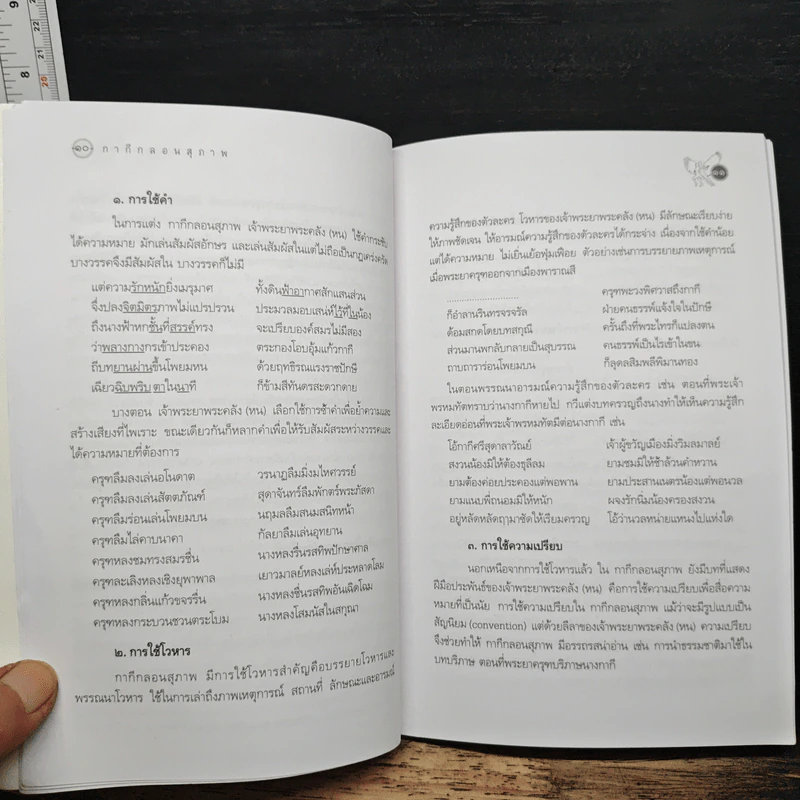 ๑๐ กากีกลอนสุภาพ
๑. การใช้คำ
ในการแต่ง กากีกลอนสุภาพ เจ้าพระยาพระคลัง (หน) ใช้คำกระชับ
ได้ความหมาย มักเล่นสัมผัสอักษร และเล่นสัมผัสในแต่ไม่ถือเป็นกฎเคร่งครัด
บางวรรคจึงมีสัมผัสใน บางวรรคก็ไม่มี
แต่ความรักหนักยิ่งเมรุมาศ ทั้งดินฟ้าอากาศสักแสนส่วน
จึ่งปลงจิตมิตรภาพไม่แปรปรวน ประมวลมอบเสน่ห์ไว้ที่ในน้อง
ถึงนางฟ้าหกชั้นที่สรรค์ทรง จะเปรียบองค์สมรไม่มีสอง
ว่าพลางทางกรเข้าประคอง ตระกองโอบอุ้มแก้วกากี
ถีบทยานผ่านขึ้นโพยมหน ด้วยฤทธิรณแรงราชปักษี
เฉียวฉิบพริบตาในนาที ก็ข้ามสีทันดรสะดวกดาย
บางตอน เจ้าพระยาพระคลัง (หน) เลือกใช้การซ้ำคำเพื่อย้ำความและ
สร้างเสียงที่ไพเราะ ขณะเดียวกันก็หลากคำเพื่อให้รับสัมผัสระหว่างวรรคและ
ได้ความหมายที่ต้องการ
ครุฑลืมลงเล่นอโนดาต วรนาฏลืมมิ่งมไหศวรรย์
ครุฑลืมลงเล่นสัตตภัณฑ์ สุดาจันทร์ลืมพักตร์พระภัสดา
ครุฑลืมร่อนเล่นโพยมบน นฤมลลืมสนมสนิทหน้า
ครุฑลืมไล่คาบนาคา กัลยาลืมเล่นอุทยาน
ครุฑหลงชมทรงสมรชื่น นางหลงรื่นรสทิพปักษาศาล
ครุฑละเลิงหลงเชิงยุพาพาล เยาวมาลย์หลงเล่ห์ประหลาดโลม
ครุฑหลงกลิ่นแก้วขจรรื่น นางหลงชื่นรสทิพอันเฉิดโฉม
ครุฑหลงกระบวนชวนตระโบม นางหลงโสมนัสในสกุณา
๒. การใช้โวหาร
กากีกลอนสุภาพ มีการใช้โวหารสำคัญคือบรรยายโวหารและ
พรรณนาโวหาร ใช้ในการเล่าถึงภาพเหตุการณ์ สถานที่ ลักษณะและอารมณ์
๑๑
ความรู้สึกของตัวละคร โวหารของเจ้าพระยาพระคลัง (หน) มีลักษณะเรียบง่าย
ให้ภาพชัดเจน ให้อารมณ์ความรู้สึกของตัวละครได้กระจ่าง เนื่องจากใช้คำน้อย
แต่ได้ความหมาย ไม่เยิ่นเย้อฟุ่มเฟือย ตัวอย่างเช่นการบรรยายภาพเหตุการณ์
เมื่อพระยาครุฑออกจากเมืองพาราณสี
........................ ครุฑพะวงพิศวาสถึงกากี
ก็อำลานรินทรจรจรัล ฝ่ายคนธรรพ์แจ้งใจในปักษี
ด้อมสกดโดยบทสกุณี ครั้นถึงที่พระไทรก็แปลงตน
ส่วนมานพกลับกลายเป็นสุบรรณ คนธรรพ์เป็นไรเข้าในขน
ถาบถาร่อนโพยมบน ก็ลุดลสิมพลีพิมานทอง
ในตอนพรรณนาอารมณ์ความรู้สึกของตัวละคร เช่น ตอนที่พระเจ้า
พรหมทัตทราบว่านางกากีหายไป กวีแต่งบทครวญถึงนางทำให้เห็นความรู้สึก
ละเอียดอ่อนที่พระเจ้าพรหมทัตมีต่อนางกากี เช่น
โอ้กากีศรีสุดาลาวัณย์ เจ้าผู้ขวัญเมืองมิ่งวิมลมาลย์
สงวนน้องมิให้ต้องธุลีลม ยามชมมิให้ช้ำล้วนคำหวาน
ยามต้องค่อยประคองแต่พอพาน ยามประสานเนตรน้องแต่พอนวล
ยามแนบพี่ถนอมมิให้หนัก ผจงรักนิ่มน้องครองสงวน
อยู่หลัดหลัดฤๅมาซัดให้เรียมครวญ โอ้ว่านวลหน่ายแหนงไปแห่งใด
๓. การใช้ความเปรียบ
นอกเหนือจากการใช้โวหารแล้ว ใน กากีกลอนสุภาพ ยังมีบทที่แสดง
ฝีมือประพันธ์ของเจ้าพระยาพระคลัง (หน) คือการใช้ความเปรียบเพื่อสื่อความ
หมายที่เป็นนัย การใช้ความเปรียบใน กากีกลอนสุภาพ แม้ว่าจะมีรูปแบบเป็น
สัญนิยม (convention) แต่ด้วยลีลาของเจ้าพระยาพระคลัง (หน) ความเปรียบ
จึงช่วยทำให้ กากีกลอนสุภาพ มีอรรถรสน่าอ่าน เช่น การนำธรรมชาติมาใช้ใน
บทบริภาษ ตอนที่พระยาครุฑบริภาษนางกากี